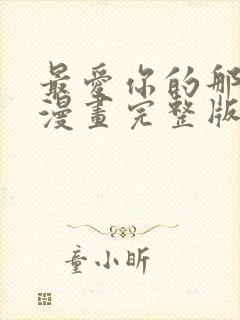 最愛你的那
漫畫完整版
童小昕